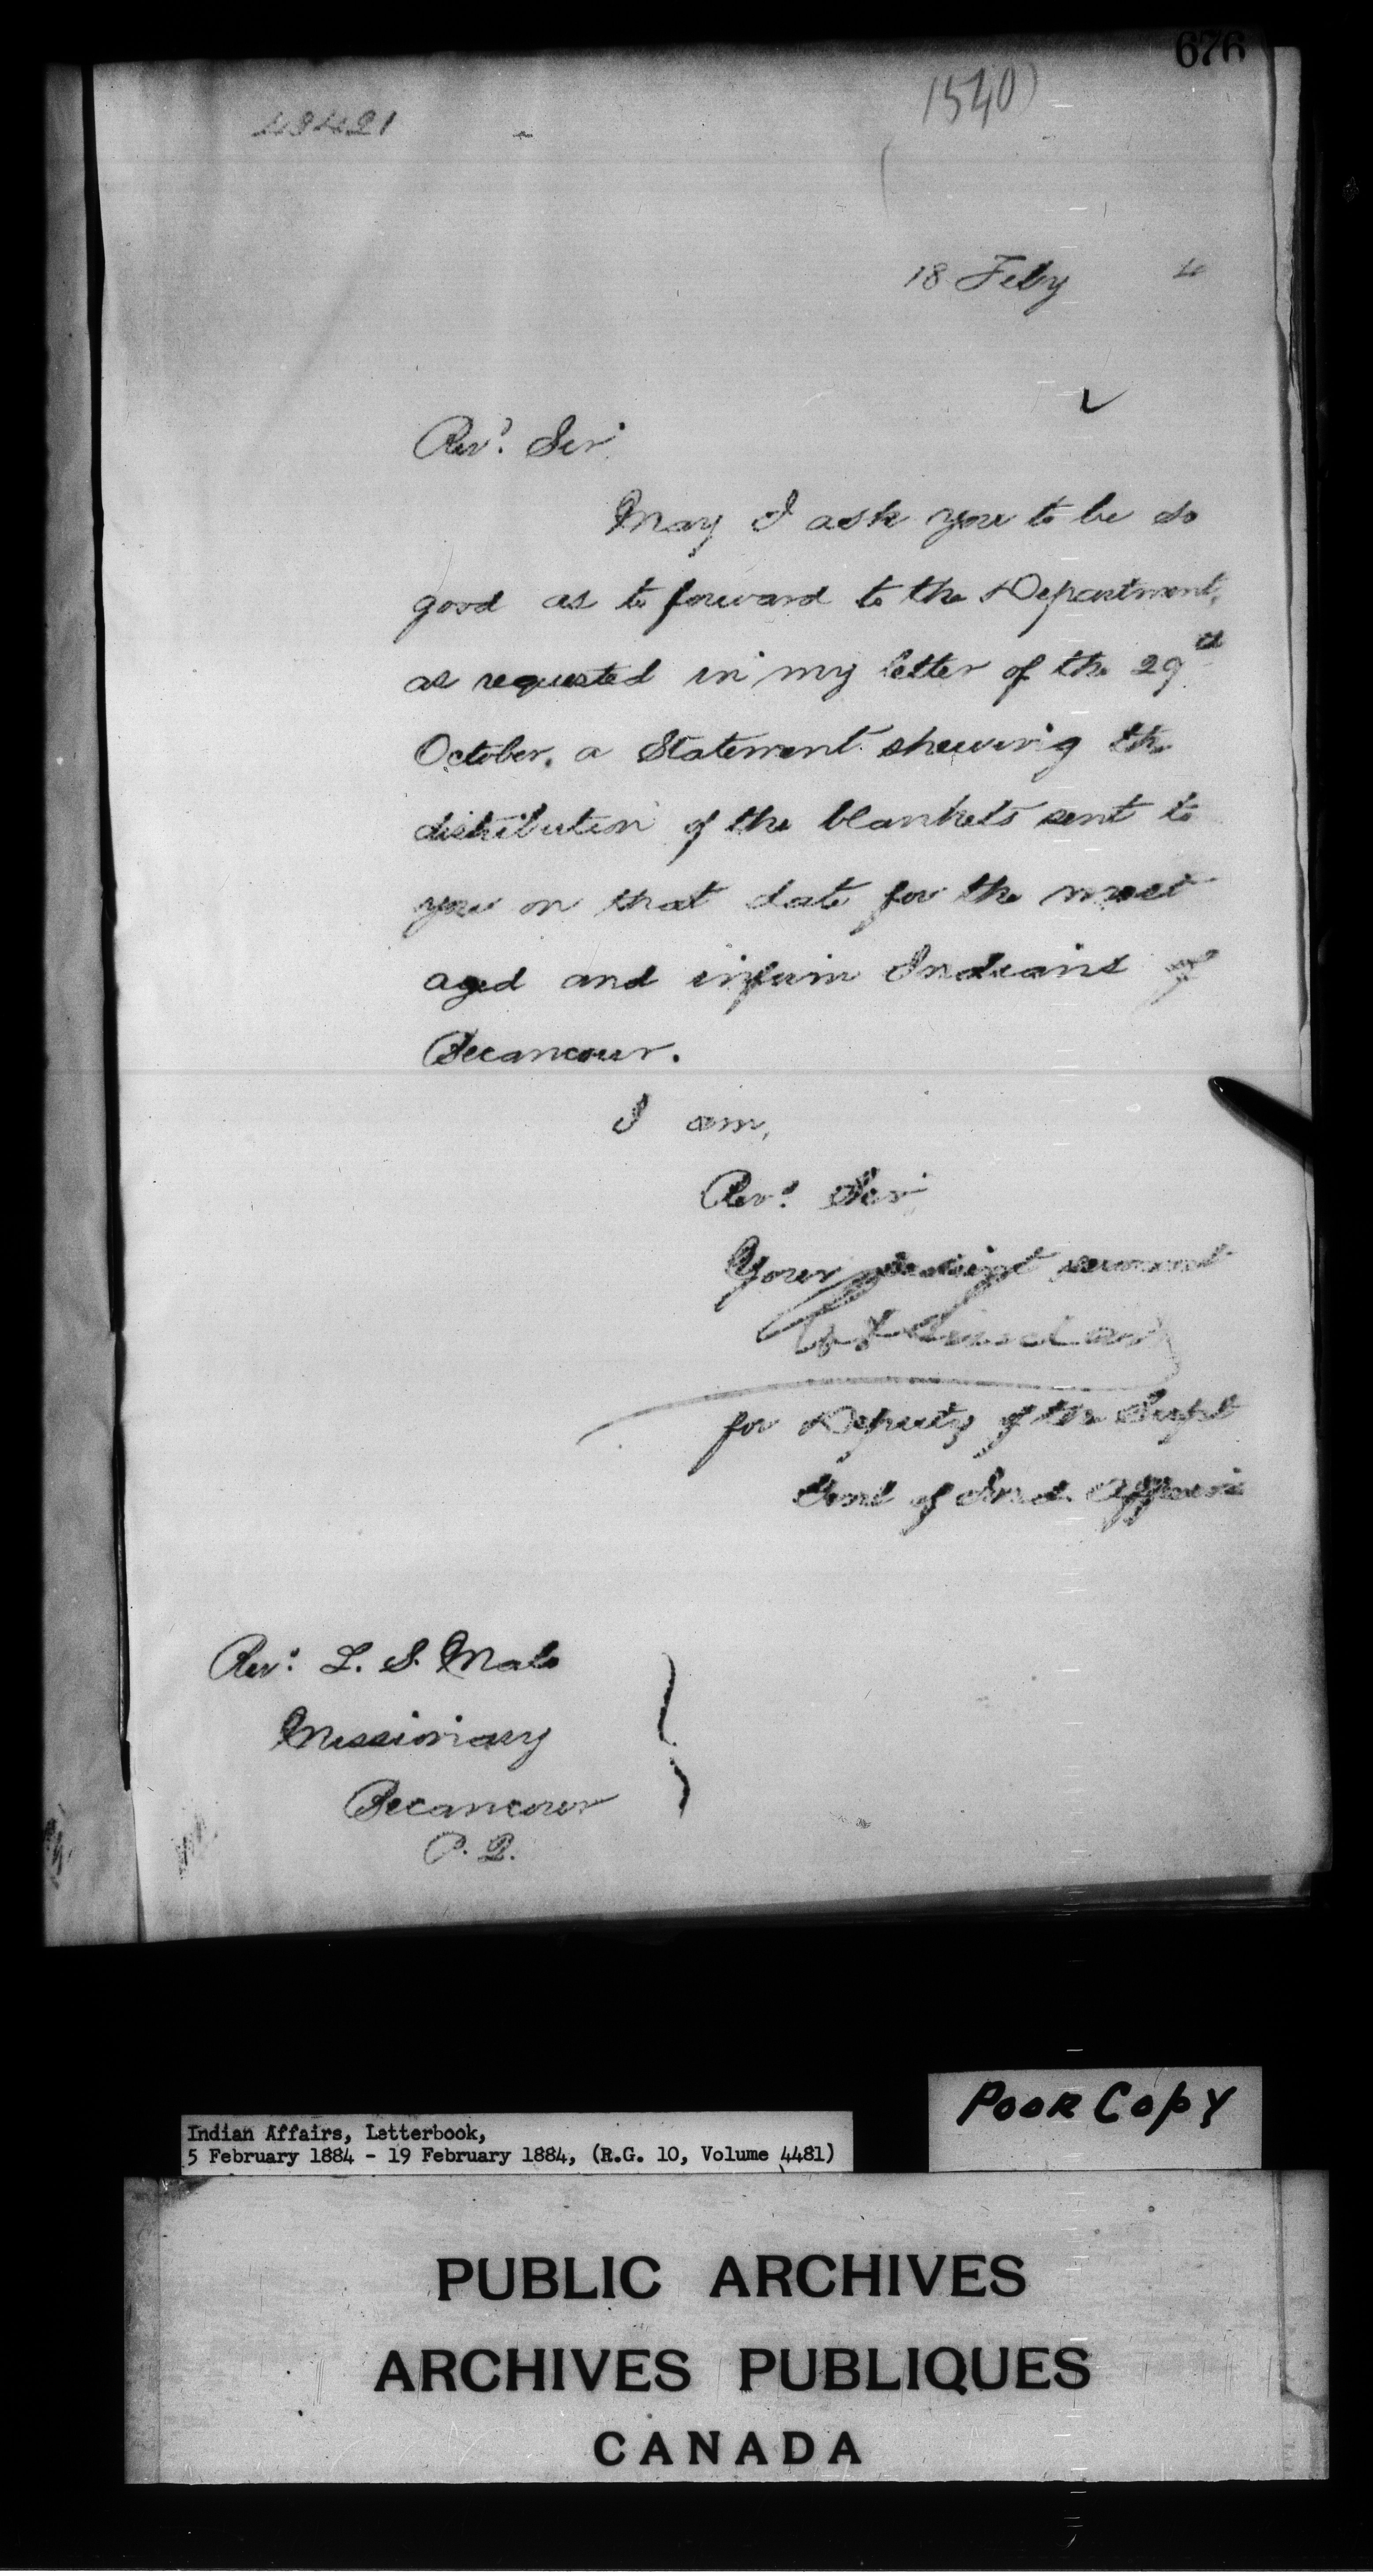 676
(1540)
18 Feby 4
Revd. Sir
May I ask you to be so
good as to forward to the Department,
as requested in my letter of the 29th
October, a Statement shewing the
distribution of the blankets sent to
you on that date for the most
aged and infirm Indians of
Becancour.
I am,
Revd. Sir
Your obedient servant
for Deputy of the Supt
Genl of Ind. Affairs
Revd. L. S. Malo
Missionary
Becancour
P. Q.
POOR COPY
Indian Affairs, Letterbook,
5 February 1884 - 19 February 1884, (R.G. 10, Volume 4481)
PUBLIC ARCHIVES
ARCHIVES PUBLIQUES
CANADA